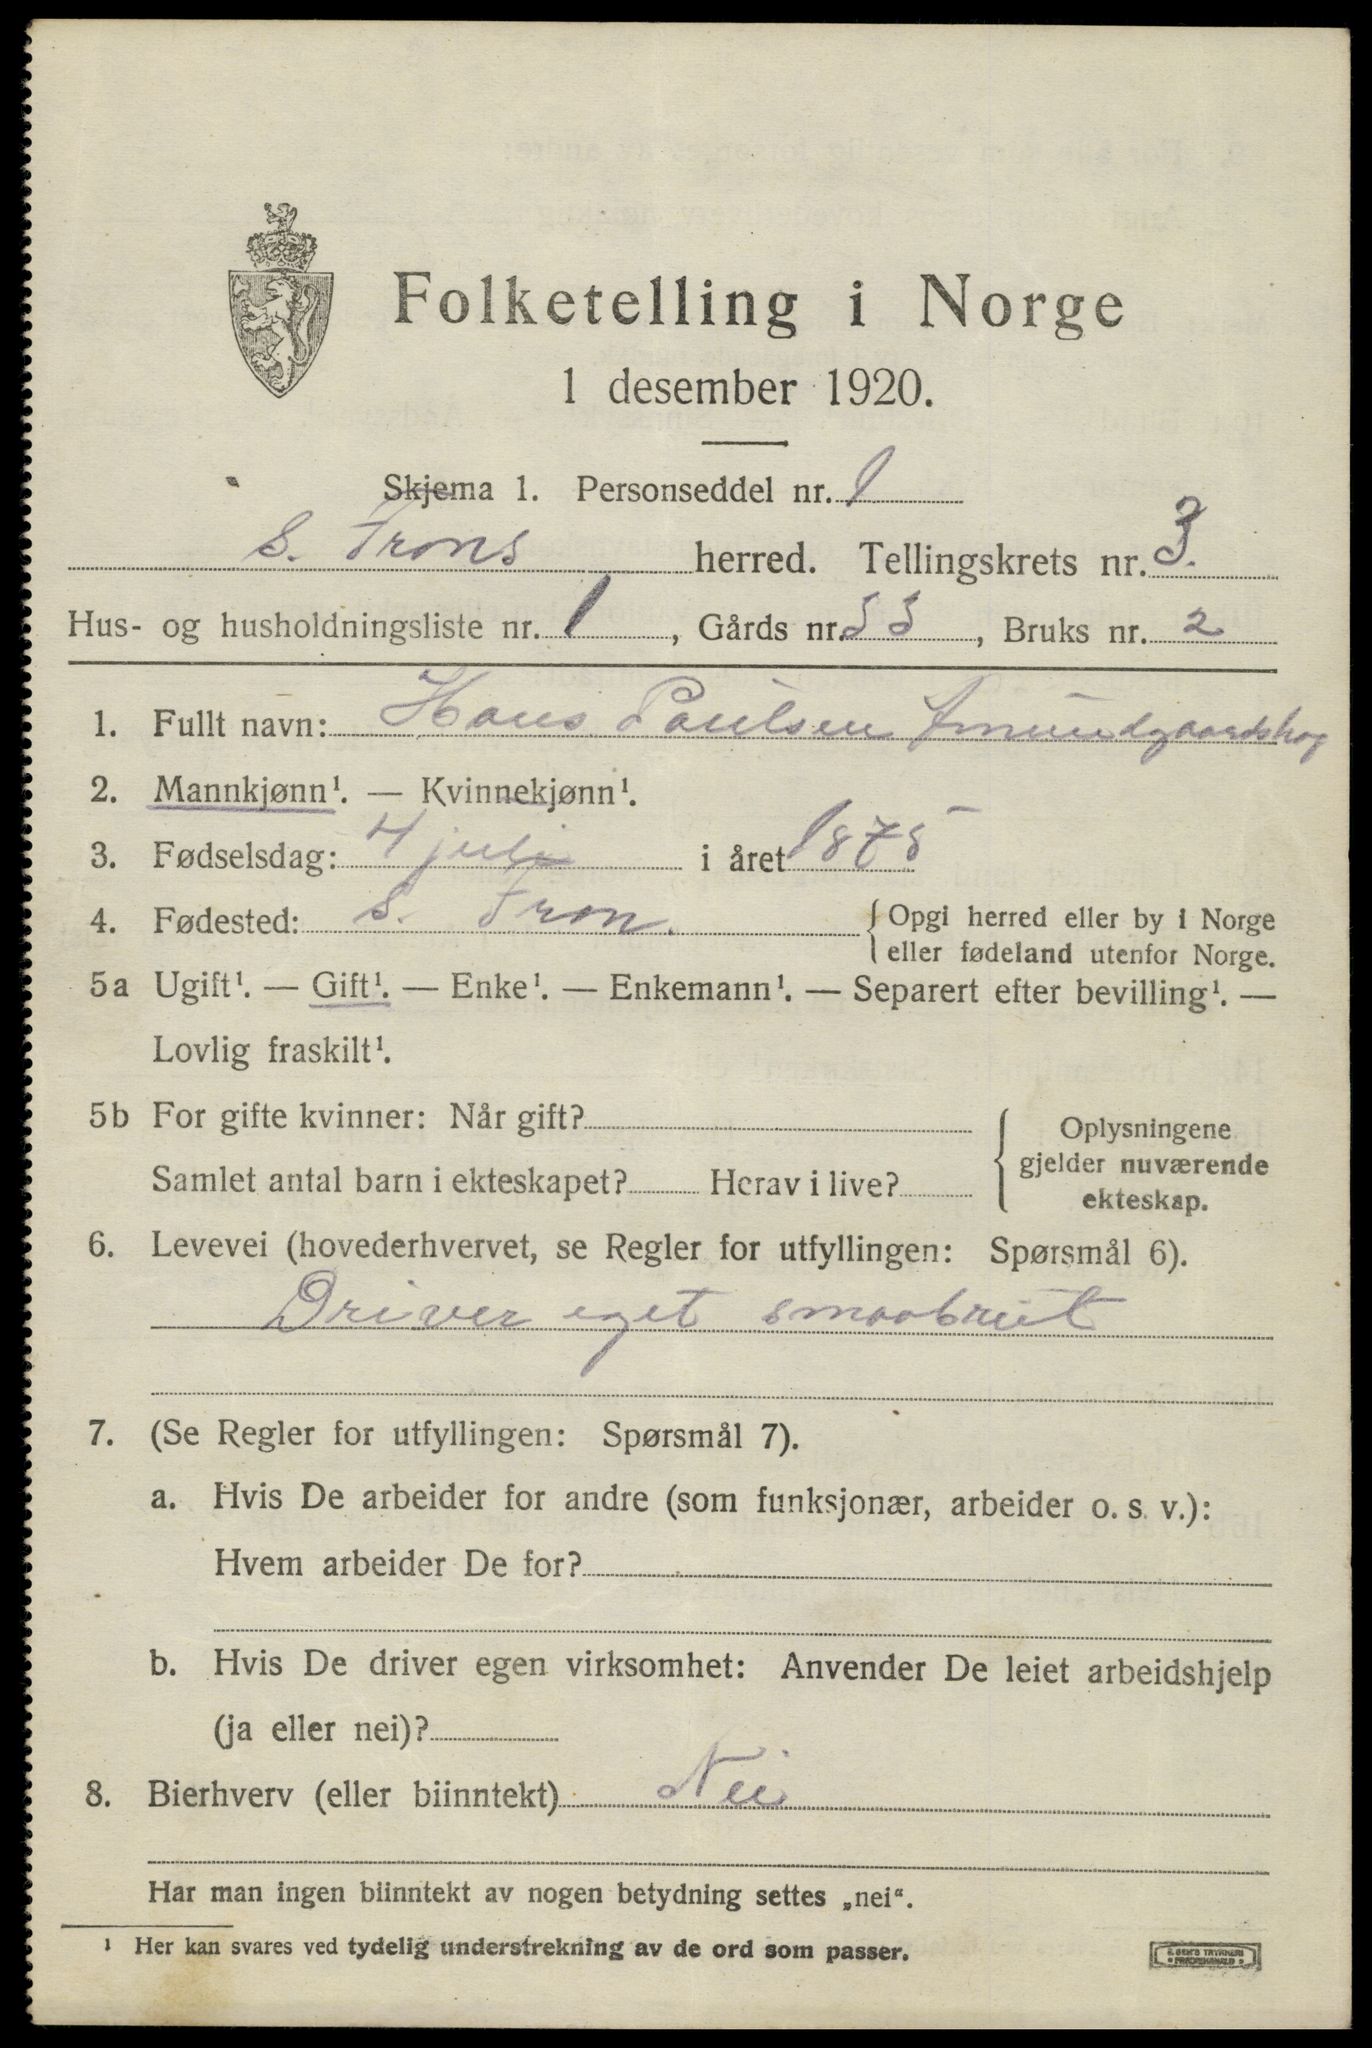 Folketelling i Norge
1 desember 1920.
Skjema 1. Personseddel nr. 1
S. Frons herred. Tellingskrets nr. 3.
Hus- og husholdningsliste nr. 1, Gårds nr. 53, Bruks nr. 2
1. Fullt navn: Hans Paulsen Amundgaardshag
2. Mannkjønn¹. — Kvinnekjønn¹.
3. Fødselsdag: 4 juli i året 1875
4. Fødested: S. Fron. { Opgi herred eller by i Norge
eller fødeland utenfor Norge.
5a Ugift¹. — Gift¹. — Enke¹. — Enkemann¹. — Separert efter bevilling¹. —
Lovlig fraskilt¹.
5b For gifte kvinner: Når gift?
Samlet antal barn i ekteskapet? Herav i live?
Oplysningene
gjelder nuværende
ekteskap.
6. Levevei (hovederhvervet, se Regler for utfyllingen: Spørsmål 6).
Driver eget smaabruk
7. (Se Regler for utfyllingen: Spørsmål 7).
a. Hvis De arbeider for andre (som funksjonær, arbeider o. s. v.):
Hvem arbeider De for?
b. Hvis De driver egen virksomhet: Anvender De leiet arbeidshjelp
(ja eller nei)?
8. Bierhverv (eller biinntekt) Nei
Har man ingen biinntekt av nogen betydning settes „nei“.
¹ Her kan svares ved tydelig understrekning av de ord som passer.